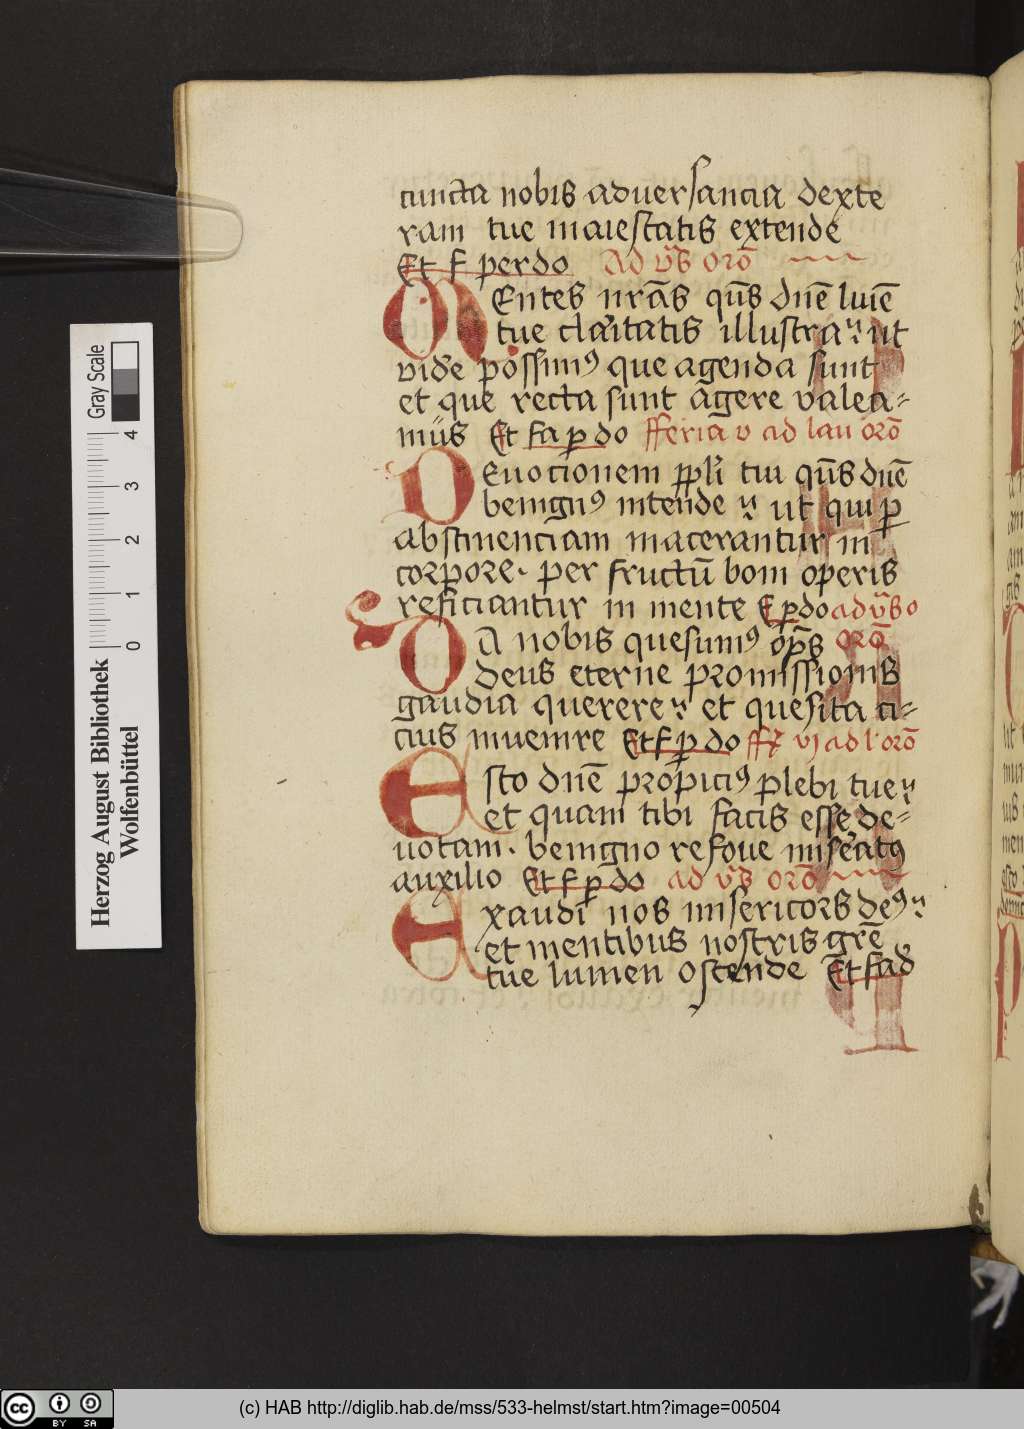 cuncta nobis aduersancia dexte
ram tue maiestatis extende
Et f perdo Ad vp̄s orō
MEntes nrās qūs dnē lumē
tue claritatis illustra ut
vidē possimꝰ que agenda sunt
et que recta sunt agere valea⸗
mus Et fa ꝑ do fferia v ad lau orō
DEuocionem ppl̄i tui qūs dnē
benignꝰ intende ut qui ꝑ
abstinenciam macerantur in
corpore· per fructū boni operis
reficiantur in mente E ꝑ do ad vp̄s o
DA nobis quesumꝰ op̄s orō
deus eterne promissionis
gaudia querere et quesita ci⸗
cius inuenire Et f ꝑ do ffꝝ vj ad l' orō
Esto dnē propiciꝰ plebi tue
et quam tibi facis esse de⸗
uotam· benigno refoue miseratꝰ
auxilio Et f ꝑ do ad vp̄s orō
Exaudi nos misericors deꝰ
et mentibus nostris grē
tue lumen ostende Et fad
Herzog August Bibliothek
Wolfenbüttel
Gray Scale
0 1 2 3 4
cc BY SA
(c) HAB http://diglib.hab.de/mss/533-helmst/start.htm?image=00504